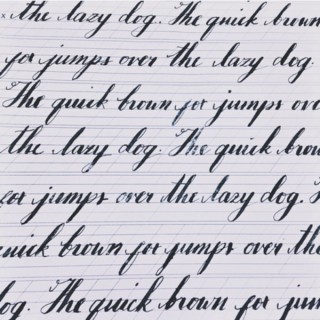 the lazy dog. The quick brown
for jumps over the lazy dog.
The quick brown for jumps ove
the lazy dog. The quick brow
for jumps over the lazy dog. T
quick brown for jumps over the
dog. The quick brown for jum